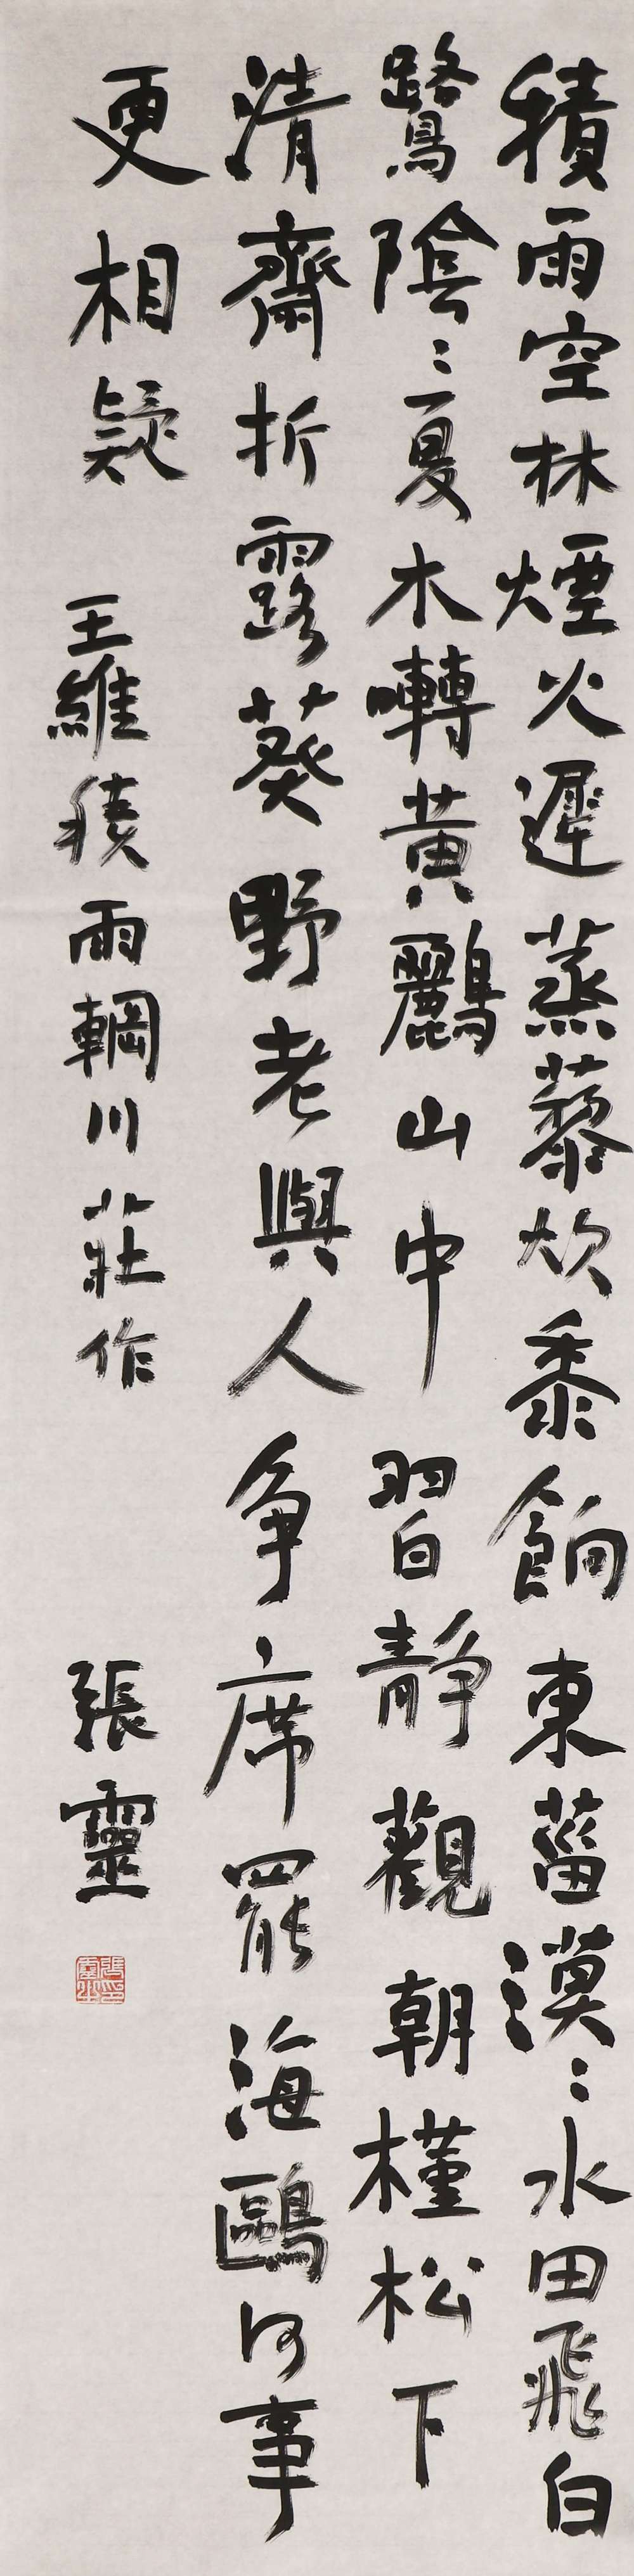 積雨空林煙火遲蒸藜炊黍餉東菑漠〻水田飛白
鷺陰〻夏木囀黃鸝山中習靜觀朝槿松下
清齋折露葵野老與人爭席罷海鷗何事
更相疑
王維積雨輞川莊作
張靈